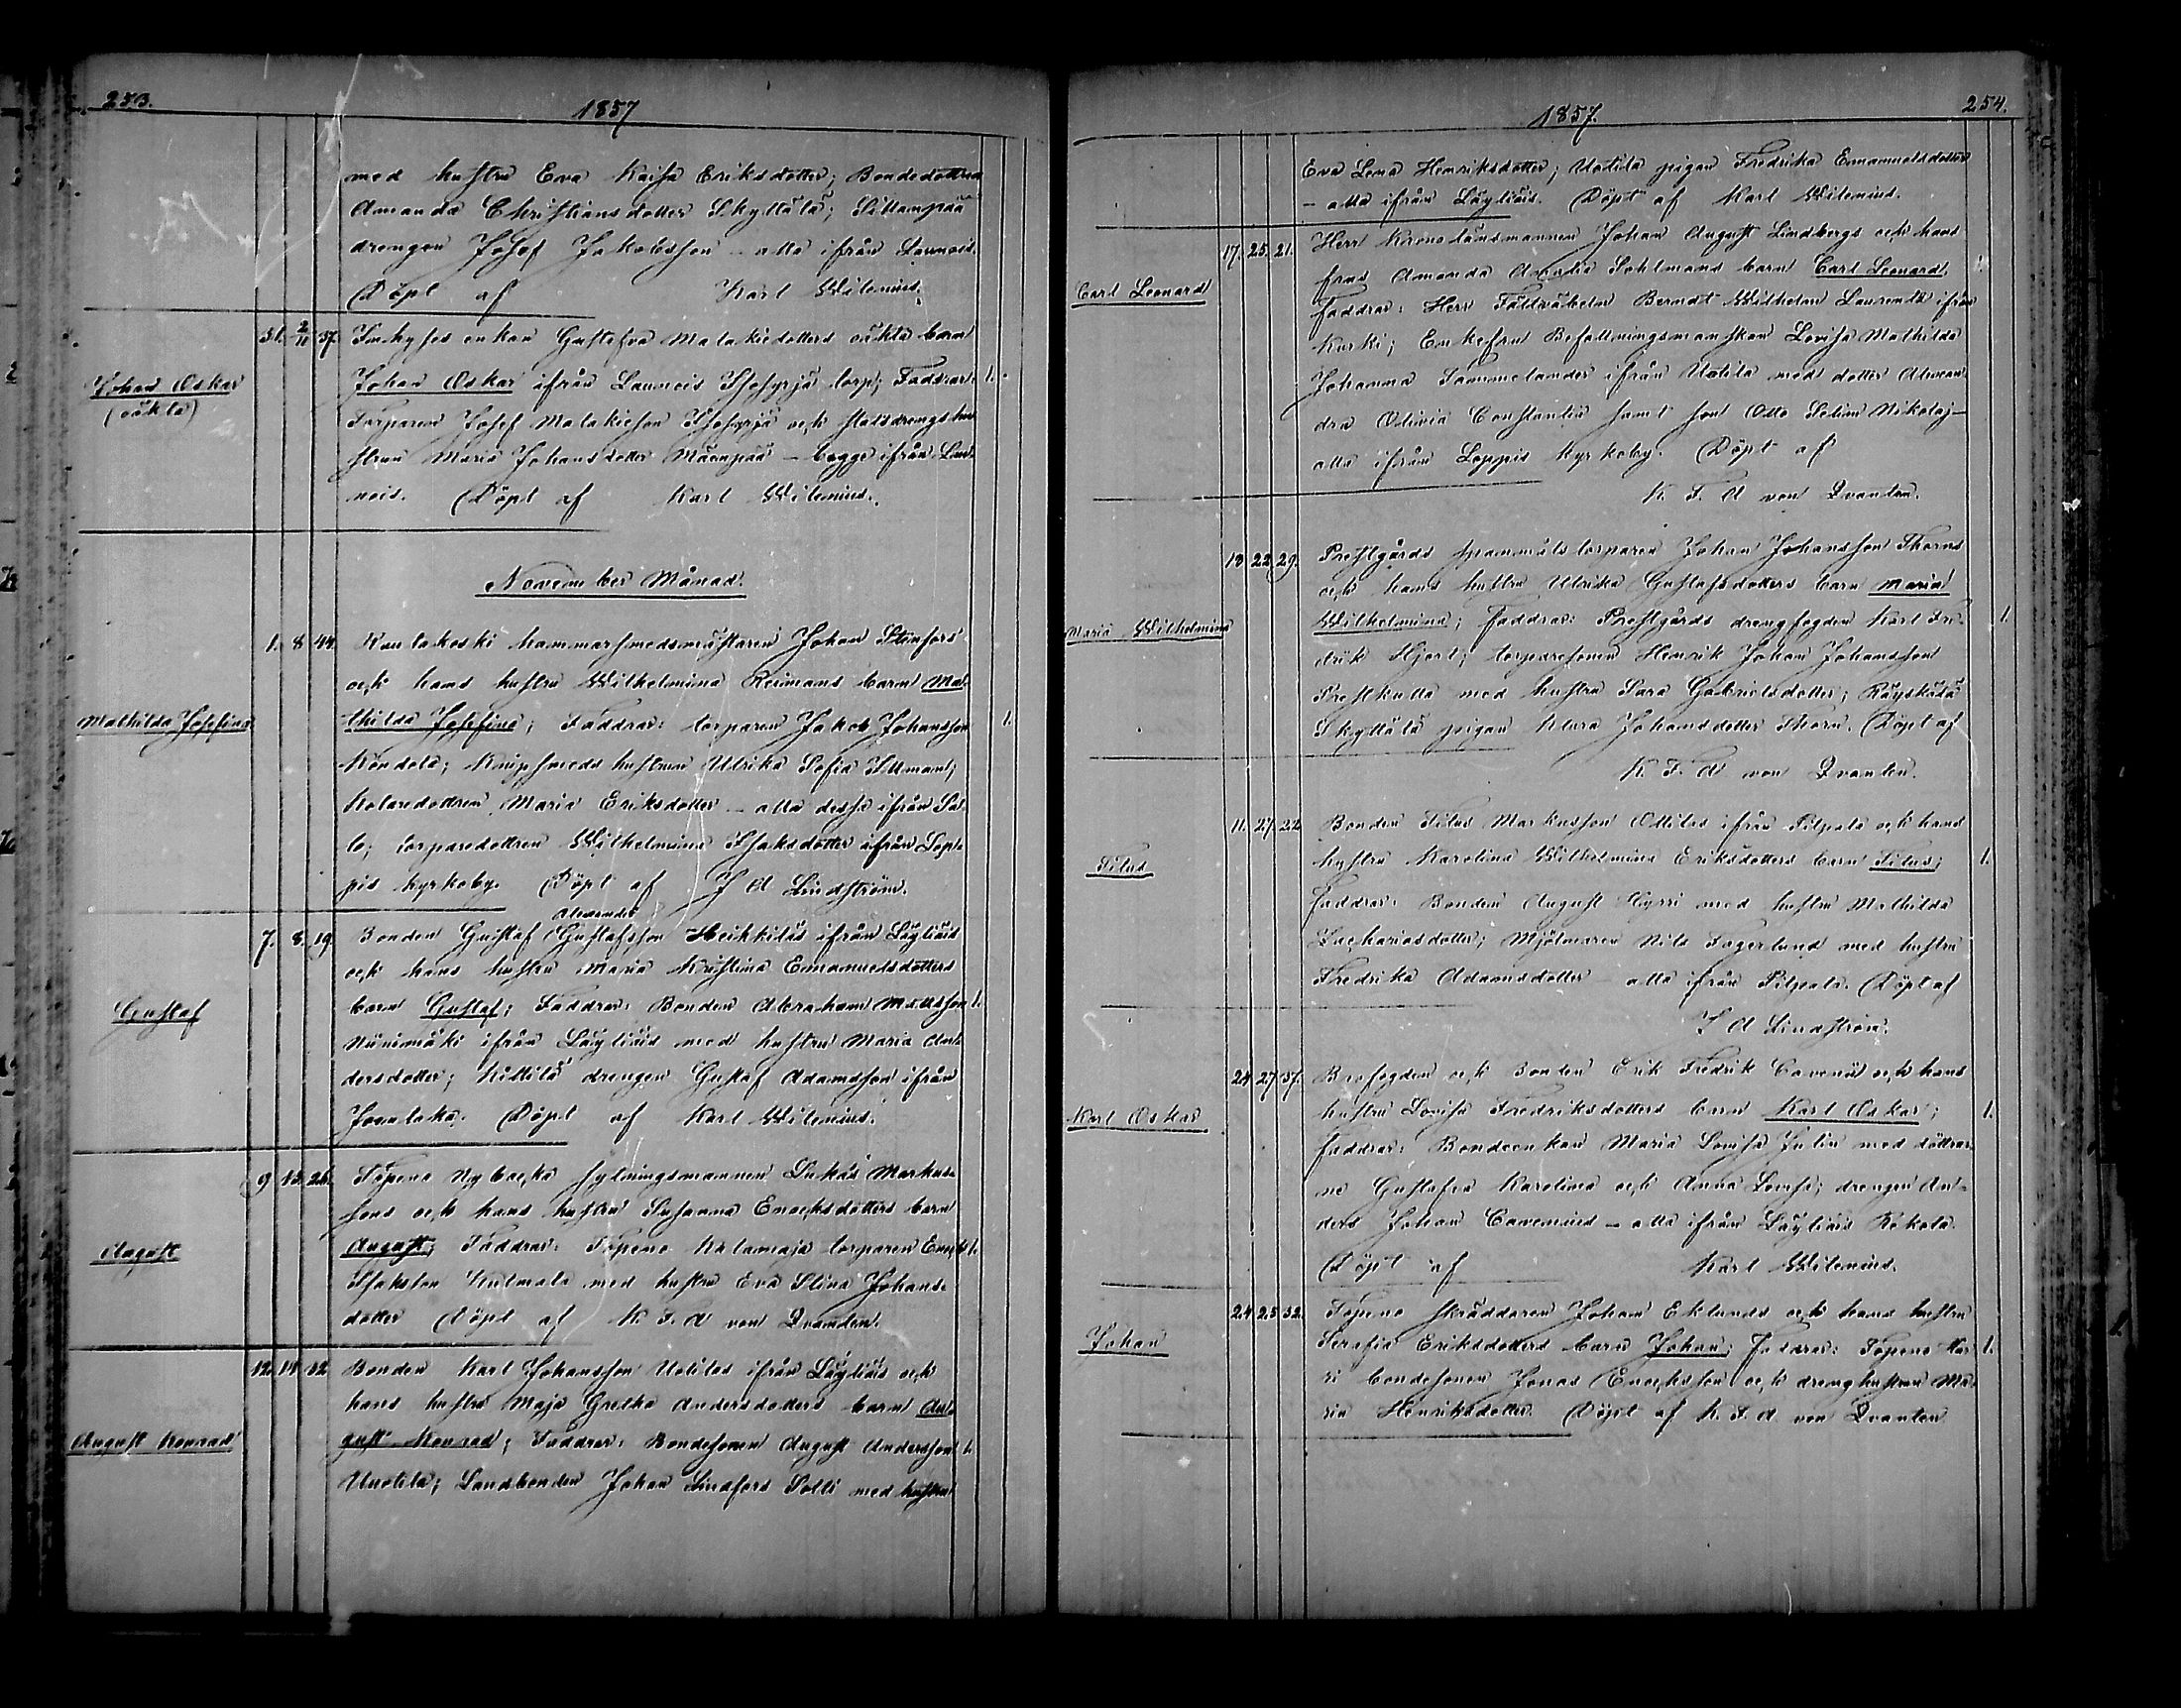 253.
1857
med hustru Eva Kaisa Eriksdotter; Bondedottren
Amanda Christiansdotter Skyttälä; Sillampää
drengen Josef Jakobsson – alla ifrån Launois.
Döpt af Karl Wilenius.
Johan Oskar
(oäkta)
31. 2/11 37. Inhyses enkan Gustafva Malakiedotters oäkta barn
Johan Oskar ifrån Launois torp; Faddrar: 1.
Torparen Josef Malakieson och statsdrengs hu-
strun Maria Johansdotter Mäenpää – begge ifrån Lau-
nois. Döpt af Karl Wilenius.
November Månad.
Mathilda Josefina
1. 8 44. Kaulakoski hammarsmedsmästaren Johan Stenfors
och hans hustru Wilhelmina Reimans barn Mat-
hilda Josefina; Faddrar: torparen Jakob Johansson 1.
Köndölä; Knipsmeds hustrun Ulrika Sofia Ittman;
Kolaredottren Maria Eriksdotter – alla dessa ifrån Sa-
lo; torparedottren Wilhelmina Isaksdotter ifrån Lop-
pis Kyrkoby. Döpt af J A Lindström.
Gustaf
Alexander
7. 8. 19. Bonden Gustaf Gustafsson Heikkiläs ifrån Läyliäis
och hans hustru Maria Kristina Emanuelsdotters
barn Gustaf; Faddrar: Bonden Abraham Mattsson 1.
Niinimäki ifrån Läyliäis med hustru Maria An-
dersdotter; Kittilä drengen Gustaf Adamsson ifrån
Joentaka. Döpt af Karl Wilenius.
August
9 15. 26. Topeno Nybacka sytningsmannen Lukas Markus-
sons och hans hustru Susanna Enochsdotters barn
August; Faddrar: Topeno Katamaja torparen Enoch 1.
Isaksson Kulmala med hustru Eva Stina Johans-
dotter Döpt af K. F. A von Qvanten.
August Konrad
12. 14 32 Bonden Karl Johansson Uotilas ifrån Läyliäis och
hans hustru Maja Gretha Andersdotters barn Au-
gust Konrad; Faddrar: Bondesonen August Andersson 1.
Uuotila; Landbonden Johan Lindfors Potti med hustru
1857.
254.
Eva Lena Henriksdotter; Uotila pigan Fredrika Emanuelsdotter
– alla ifrån Läyliäis. Döpt af Karl Wilenius.
Carl Leonard
17. 25. 21. Herr Kronolänsmannen Johan August Lindbergs och hans
frus Amanda Amalia Sohlmans barn Carl Leonard 1.
Faddrar: Herr Fältväbeln Berndt Wilhelm Laurentz ifrån
Kurki; Enkefru Befallningsmanskan Lovisa Mathilda
Johanna Tammelander ifrån Uotila med dotter Alexan-
dra Olivia Constantia samt son Otto Selim Nikolaj –
alla ifrån Loppis Kyrkoby. Döpt af
K. F. A von Qvanten.
Maria Wilhelmina
18 22 29. Prestgårds spannmåls torparen Johan Johansson Thorns
och hans hustru Ulrika Gustafsdotters barn Maria
Wilhelmina; Faddrar: Prestgårds drengfogden Karl Fre- 1.
drik Hjort; torparesonen Henrik Johan Johansson
Prestkulla med hustru Sara Gabrielsdotter; Räyskälä
Skyttälä pigan Klara Johansdotter Thorn. Döpt af
K. F. A von Qvanten.
Titus
11. 27. 22 Bonden Titus Markusson Ollilas ifrån Pilpala och hans
hustru Karolina Wilhelmina Eriksdotters barn Titus; 1.
Faddrar: Bonden August Hyrri med hustru Mathilda
Zachariasdotter; Mjölnaren Nils Fagerlund med hustru
Fredrika Adamsdotter – alla ifrån Pilpala. Döpt af
J A Lindström.
Karl Oskar
24 27 37. Brofogden och Bonden Erik Fredrik Cavenii och hans
hustru Lovisa Fredriksdotters barn Karl Oskar; 1.
Faddrar: Bondeenkan Maria Lovisa Julin med döttrar-
ne Gustafva Karolina och Anna Lovisa; drengen An-
ders Johan Cavenius – alla ifrån Läyliäis Kokola.
Döpt af Karl Wilenius.
Johan
24 25 32. Topeno skräddaren Johan Eklunds och hans hustru
Serafia Eriksdotters barn Johan; Faddrar: Topeno Har- 1.
ri bondesonen Jonas Enochsson och drenghustrun Ma-
ria Henriksdotter. Döpt af K. F. A von Qvanten